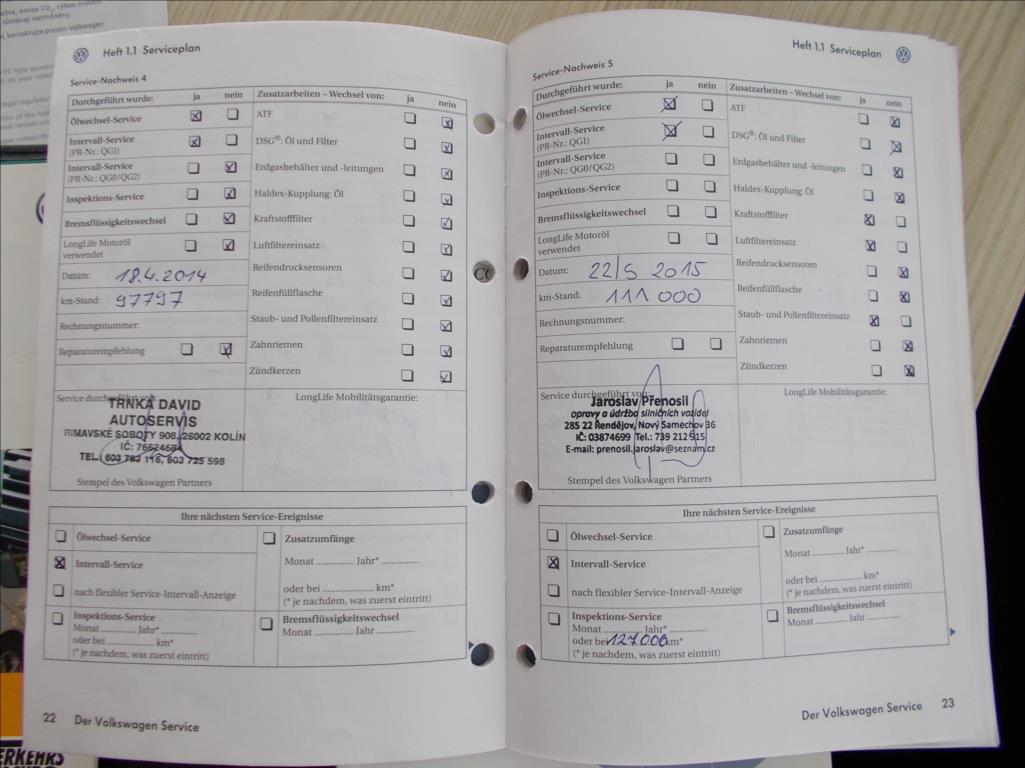 zůstávají nezměněny.
kontaktujte prosím Volkswagen
EC type approv
on your vehic
legal regulation
Heft 1.1 Serviceplan
Service-Nachweis 4
Durchgeführt wurde: ja nein
Ölwechsel-Service
Intervall-Service
(PR-Nr.: QG1)
Intervall-Service
(PR-Nr.: QG0/QG2)
Inspektions-Service
Bremsflüssigkeitswechsel
LongLife Motoröl
verwendet
Datum: 18.4.2014
km-Stand: 97797
Rechnungsnummer:
Reparaturempfehlung
Zusatzarbeiten – Wechsel von: ja nein
ATF
DSG®: Öl und Filter
Erdgasbehälter und -leitungen
Haldex-Kupplung: Öl
Kraftstofffilter
Luftfiltereinsatz
Reifendrucksensoren
Reifenfüllflasche
Staub- und Pollenfiltereinsatz
Zahnriemen
Zündkerzen
Service durchgeführt von:
TRNKA DAVID
AUTOSERVIS
RIMAVSKÉ SOBOTY 908, 28002 KOLÍN
IČ: 76624684
TEL.: 603 783 116, 603 725 598
Stempel des Volkswagen Partners
LongLife Mobilitätsgarantie:
Ihre nächsten Service-Ereignisse
Ölwechsel-Service
Intervall-Service
nach flexibler Service-Intervall-Anzeige
Inspektions-Service
Monat ............ Jahr* ............
oder bei ............ km*
(* je nachdem, was zuerst eintritt)
Zusatzumfänge
Monat ............ Jahr* ............
oder bei ............ km*
(* je nachdem, was zuerst eintritt)
Bremsflüssigkeitswechsel
Monat ............ Jahr ............
22 Der Volkswagen Service
Heft 1.1 Serviceplan
Service-Nachweis 5
Durchgeführt wurde: ja nein
Ölwechsel-Service
Intervall-Service
(PR-Nr.: QG1)
Intervall-Service
(PR-Nr.: QG0/QG2)
Inspektions-Service
Bremsflüssigkeitswechsel
LongLife Motoröl
verwendet
Datum: 22/5 2015
km-Stand: 111 000
Rechnungsnummer:
Reparaturempfehlung
Zusatzarbeiten – Wechsel von: ja nein
ATF
DSG®: Öl und Filter
Erdgasbehälter und -leitungen
Haldex-Kupplung: Öl
Kraftstofffilter
Luftfiltereinsatz
Reifendrucksensoren
Reifenfüllflasche
Staub- und Pollenfiltereinsatz
Zahnriemen
Zündkerzen
Service durchgeführt von:
Jaroslav Přenosil
opravy a údržba silničních vozidel
285 22 Řendějov, Nový Samechov 36
IČ: 03874699 Tel.: 739 212 515
E-mail: prenosil.jaroslav@seznam.cz
Stempel des Volkswagen Partners
LongLife Mobilitätsgarantie:
Ihre nächsten Service-Ereignisse
Ölwechsel-Service
Intervall-Service
nach flexibler Service-Intervall-Anzeige
Inspektions-Service
Monat ............ Jahr* ............
oder bei 127.000 km*
(* je nachdem, was zuerst eintritt)
Zusatzumfänge
Monat ............ Jahr* ............
oder bei ............ km*
(* je nachdem, was zuerst eintritt)
Bremsflüssigkeitswechsel
Monat ............ Jahr ............
Der Volkswagen Service 23
ERKEHRS